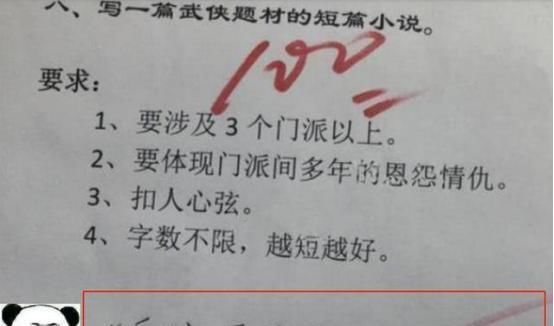 八、写一篇武侠题材的短篇小说。
100
要求：
1、要涉及3个门派以上。
2、要体现门派间多年的恩怨情仇。
3、扣人心弦。
4、字数不限，越短越好。